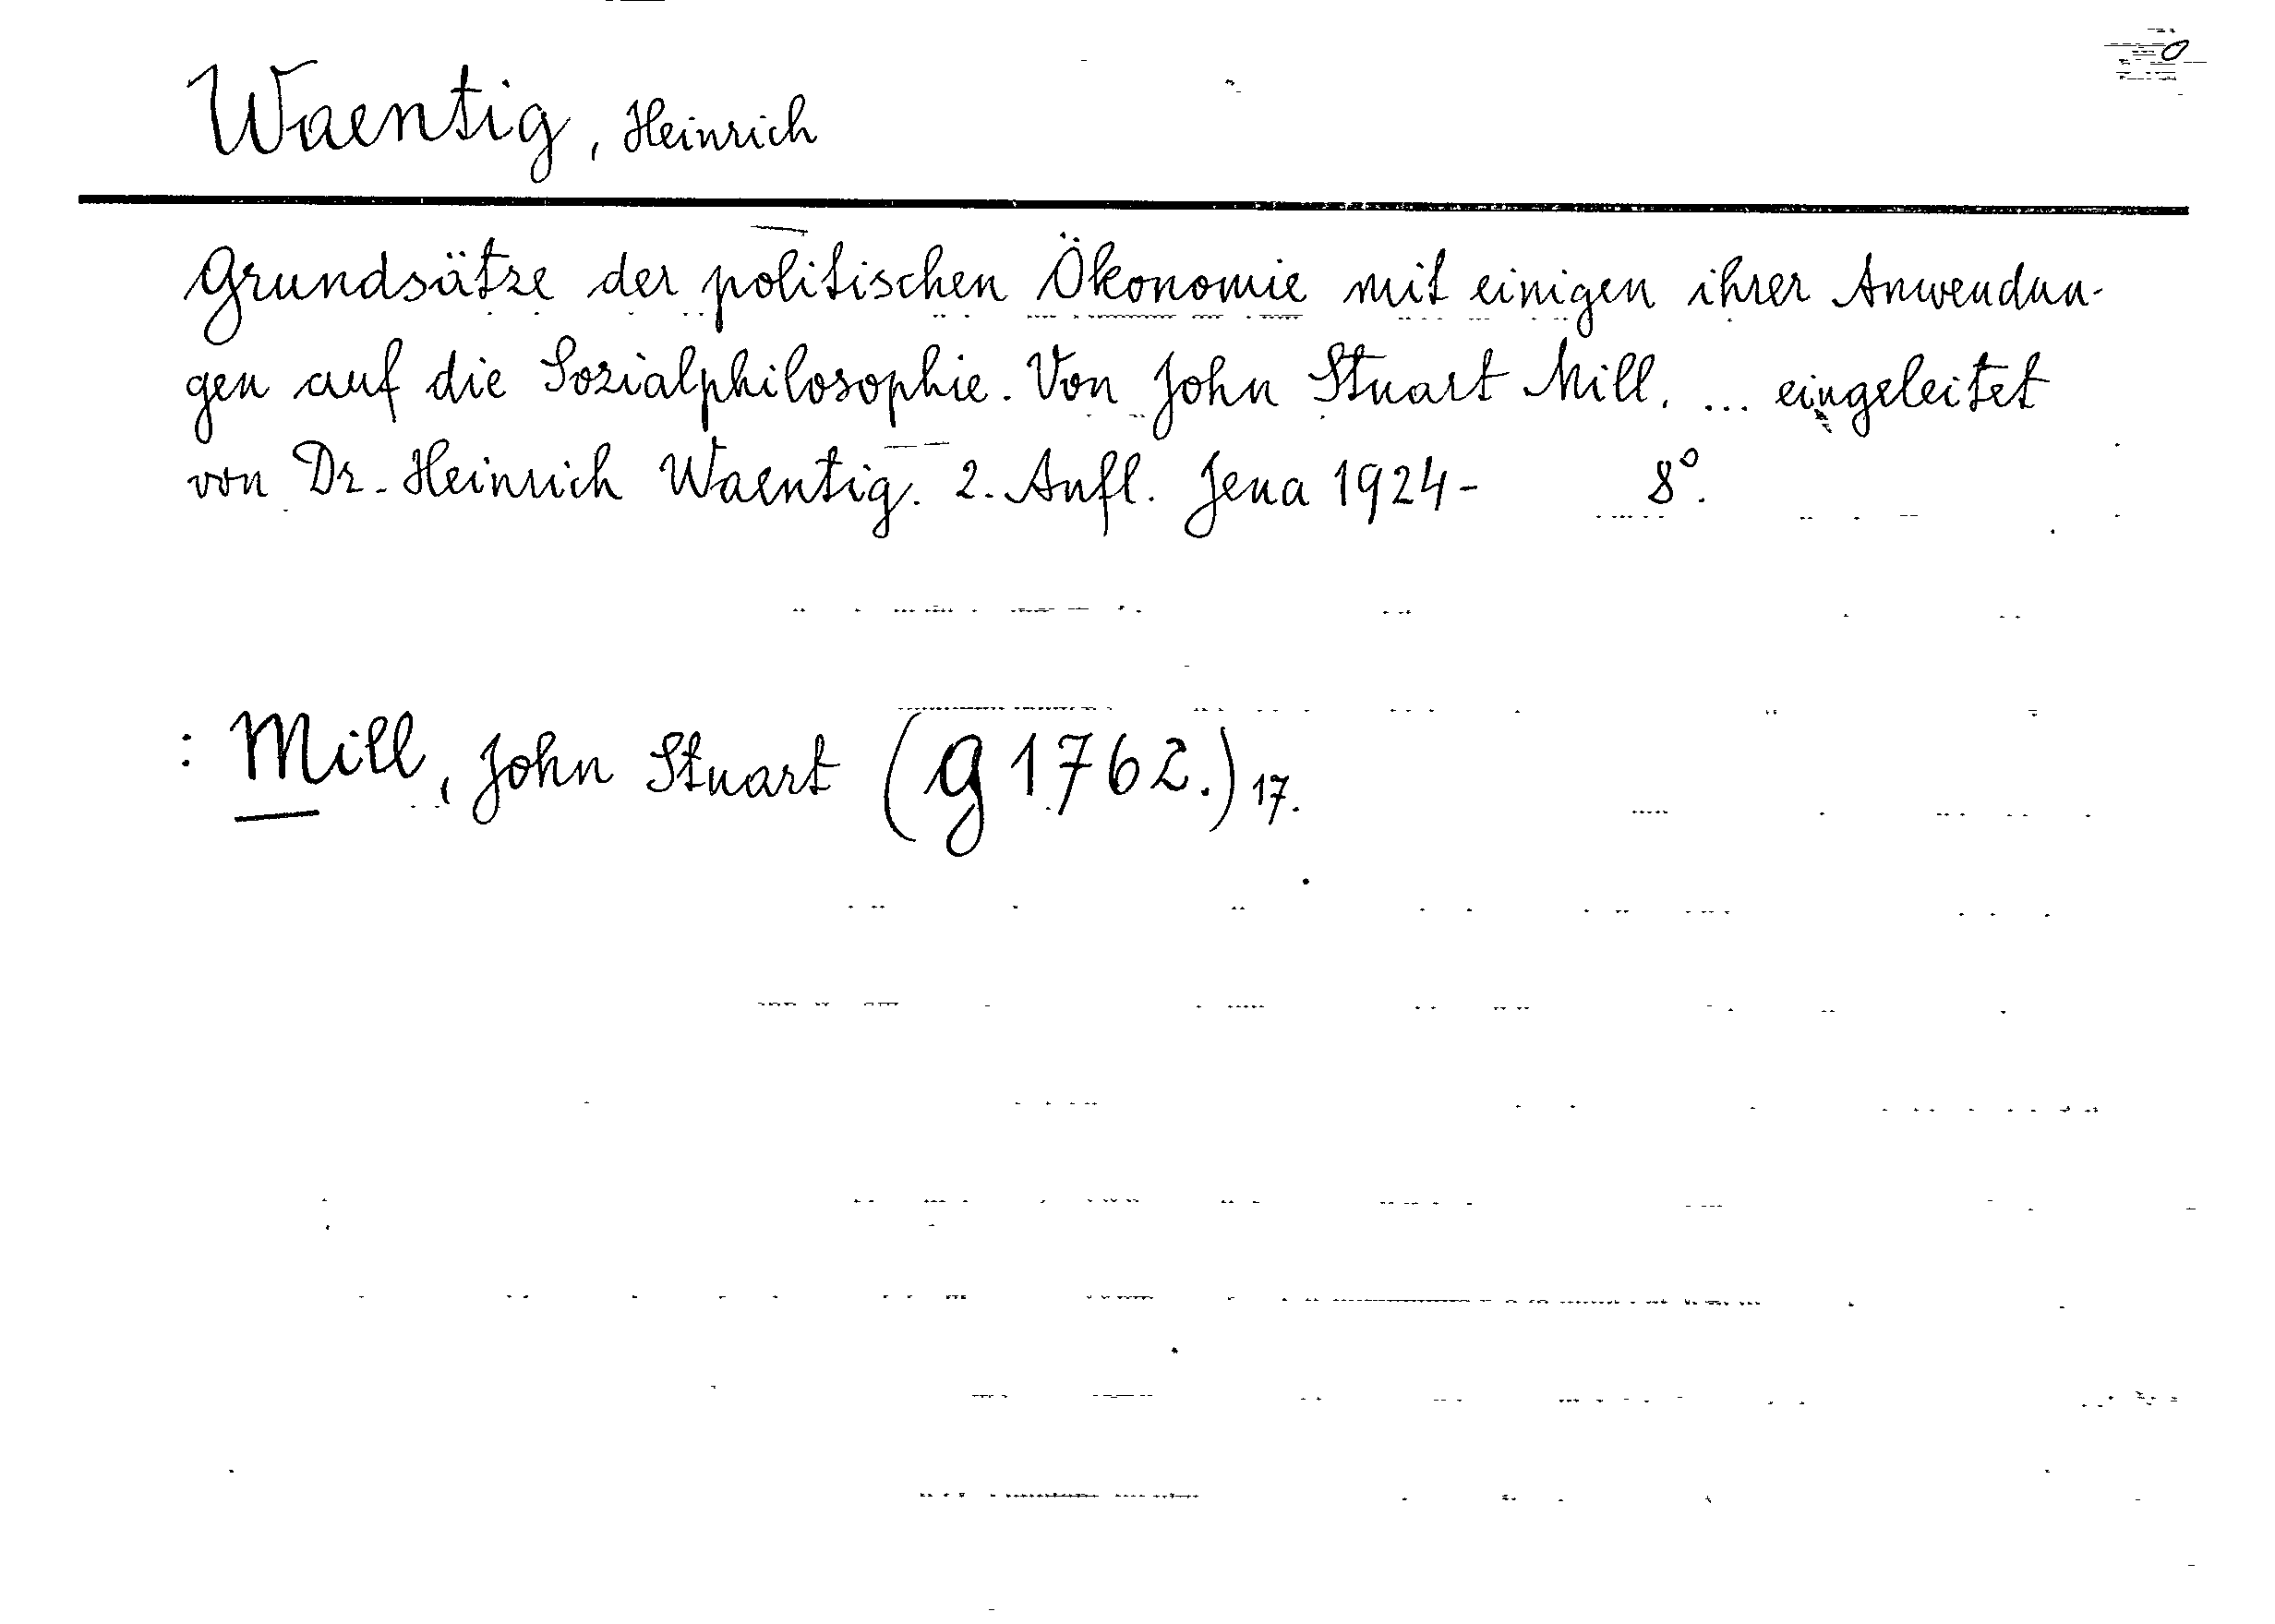 Waentig, Heinrich
Grundsätze der politischen Ökonomie mit einigen ihrer Anwendun-
gen auf die Sozialphilosophie. Von John Stuart Mill. ... eingeleitet
von Dr. Heinrich Waentig. 2. Aufl. Jena 1924- 8°.
: Mill, John Stuart (g 1762.) 17.